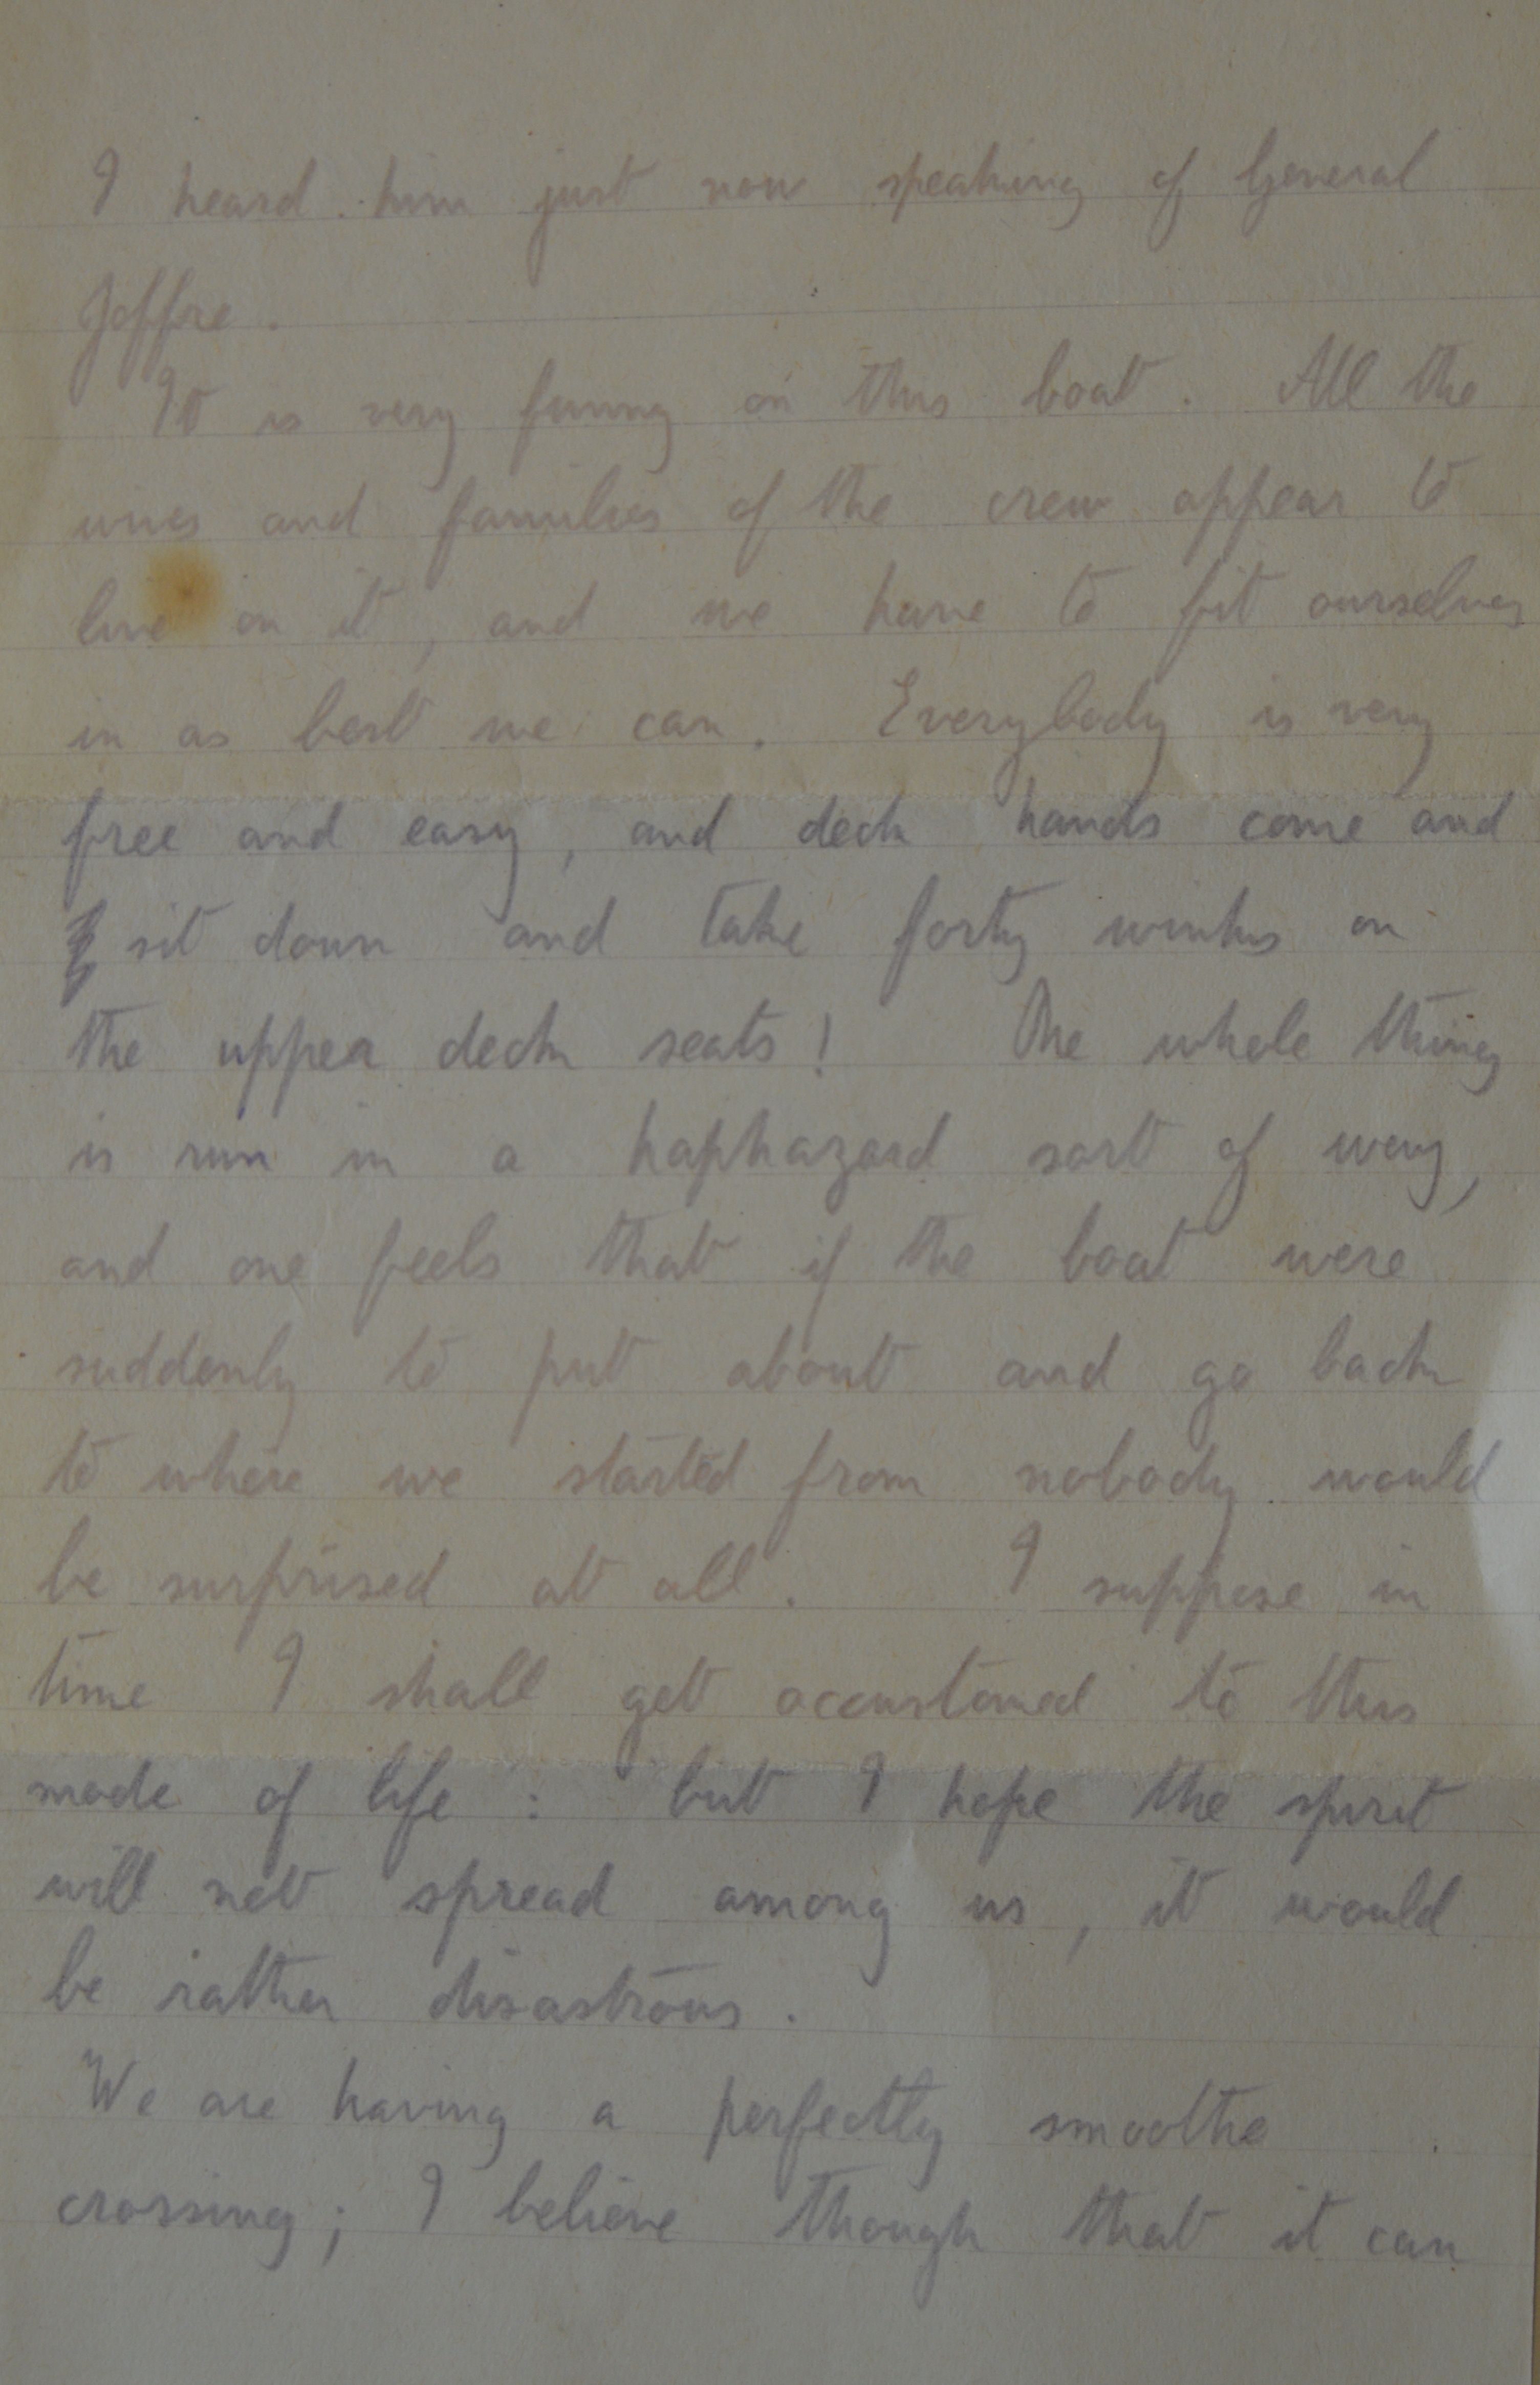 I heard him just now speaking of General
Joffre.
It is very funny on this boat. All the
wives and families of the crew appear to
live on it, and we have to fit ourselves
in as best we can. Everybody is very
free and easy, and deck hands come and
sit down and take forty winks on
the upper deck seats! The whole thing
is run in a haphazard sort of way,
and one feels that if the boat were
suddenly to put about and go back
to where we started from nobody would
be surprised at all. I suppose in
time I shall get accustomed to this
mode of life: but I hope the spirit
will not spread among us, it would
be rather disastrous.
We are having a perfectly smoothe
crossing; I believe though that it can